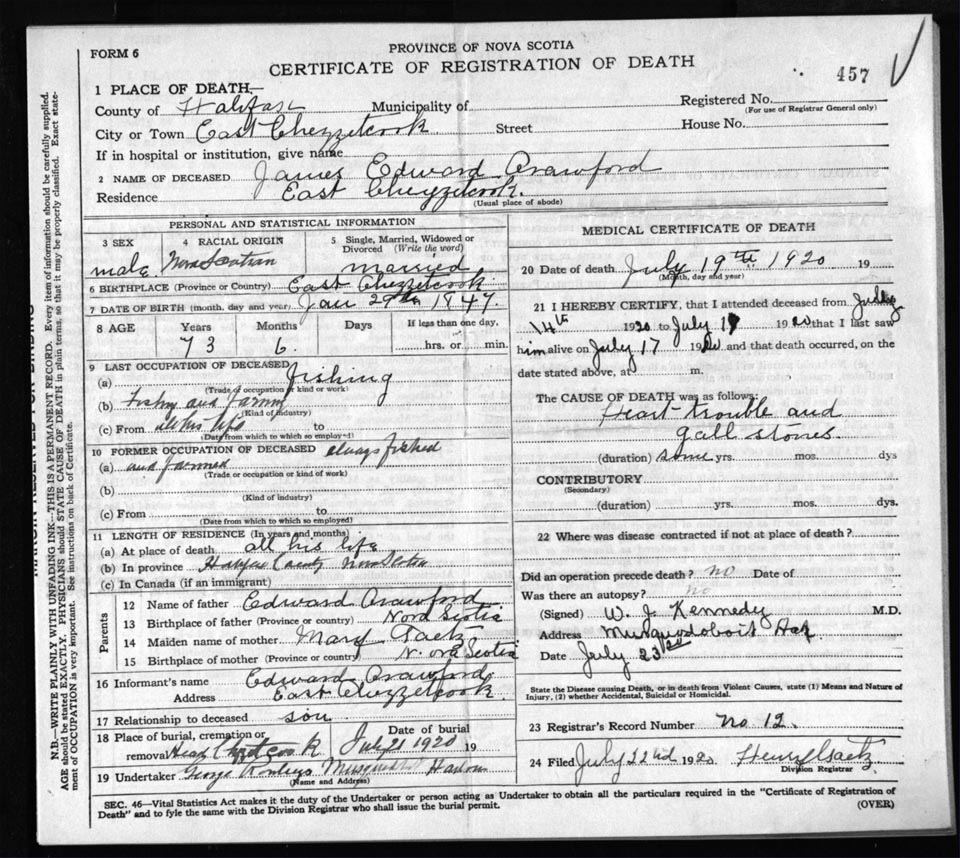 FORM 6
PROVINCE OF NOVA SCOTIA
CERTIFICATE OF REGISTRATION OF DEATH
457
1 PLACE OF DEATH,—
County of Halifax Municipality of
Registered No.
(For use of Registrar General only)
City or Town East Chezzetcook Street House No.
If in hospital or institution, give name
2 NAME OF DECEASED James Edward Crawford
Residence East Chezzetcook.
(Usual place of abode)
PERSONAL AND STATISTICAL INFORMATION
3 SEX male
4 RACIAL ORIGIN Nova Scotian
5 Single, Married, Widowed or Divorced (Write the word)
Married
6 BIRTHPLACE (Province or Country) East Chezzetcook
7 DATE OF BIRTH (month, day and year) Jan 29th 1847.
8 AGE Years Months Days If less than one day,
73 6. hrs. or min.
9 LAST OCCUPATION OF DECEASED
(a) fishing
(Trade of occupation or kind or work)
(b) Fishing and Farming
(Kind of industry)
(c) From all his life to
(Date from which to which so employed)
10 FORMER OCCUPATION OF DECEASED always fished
(a) and farmed
(Trade or occupation or kind of work)
(b)
(Kind of industry)
(c) From to
(Date from which to which so employed)
11 LENGTH OF RESIDENCE (In years and months)
(a) At place of death all his life
(b) In province Halifax County Nova Scotia
(c) In Canada (if an immigrant)
Parents
12 Name of father Edward Crawford
13 Birthplace of father (Province or country) Nova Scotia
14 Maiden name of mother Mary Gaetz
15 Birthplace of mother (Province or country) N. ova Scotia
16 Informant's name Edward Crawford
Address East Chezzetcook
17 Relationship to deceased son
18 Place of burial, cremation or removal Head Chezzetcook
Date of burial July 21 1920 19
19 Undertaker George Musquodoboit Harbour
(Name and Address)
MEDICAL CERTIFICATE OF DEATH
20 Date of death July 19th 1920 19
(Month, day and year)
21 I HEREBY CERTIFY, that I attended deceased from July
14th 1920 to July 1920 that I last saw
him alive on July 17 1920 and that death occurred, on the
date stated above, at m.
The CAUSE OF DEATH was as follows:
Heart trouble and
gall stones.
(duration) some yrs. mos. dys
CONTRIBUTORY
(Secondary)
(duration) yrs. mos. dys.
22 Where was disease contracted if not at place of death?
Did an operation precede death? no Date of
Was there an autopsy? no
(Signed) W. J. Kennedy M.D.
Address Musquodoboit Har
Date July 23rd
State the Disease causing Death, or in death from Violent Causes, state (1) Means and Nature of
Injury, (2) whether Accidental, Suicidal or Homicidal.
23 Registrar's Record Number No 12.
24 Filed July 22nd 1920 Henry Gaetz
Division Registrar
SEC. 46—Vital Statistics Act makes it the duty of the Undertaker or person acting as Undertaker to obtain all the particulars required in the "Certificate of Registration of
Death" and to fyle the same with the Division Registrar who shall issue the burial permit.
(OVER)
MARGIN RESERVED FOR BINDING
N.B.—WRITE PLAINLY WITH UNFADING INK—THIS IS A PERMANENT RECORD. Every item of information should be carefully supplied.
AGE should be stated EXACTLY. PHYSICIANS should STATE CAUSE OF DEATH in plain terms, so that it may be properly classified. Exact state-
ment of OCCUPATION is very important. See instructions on back of Certificate.